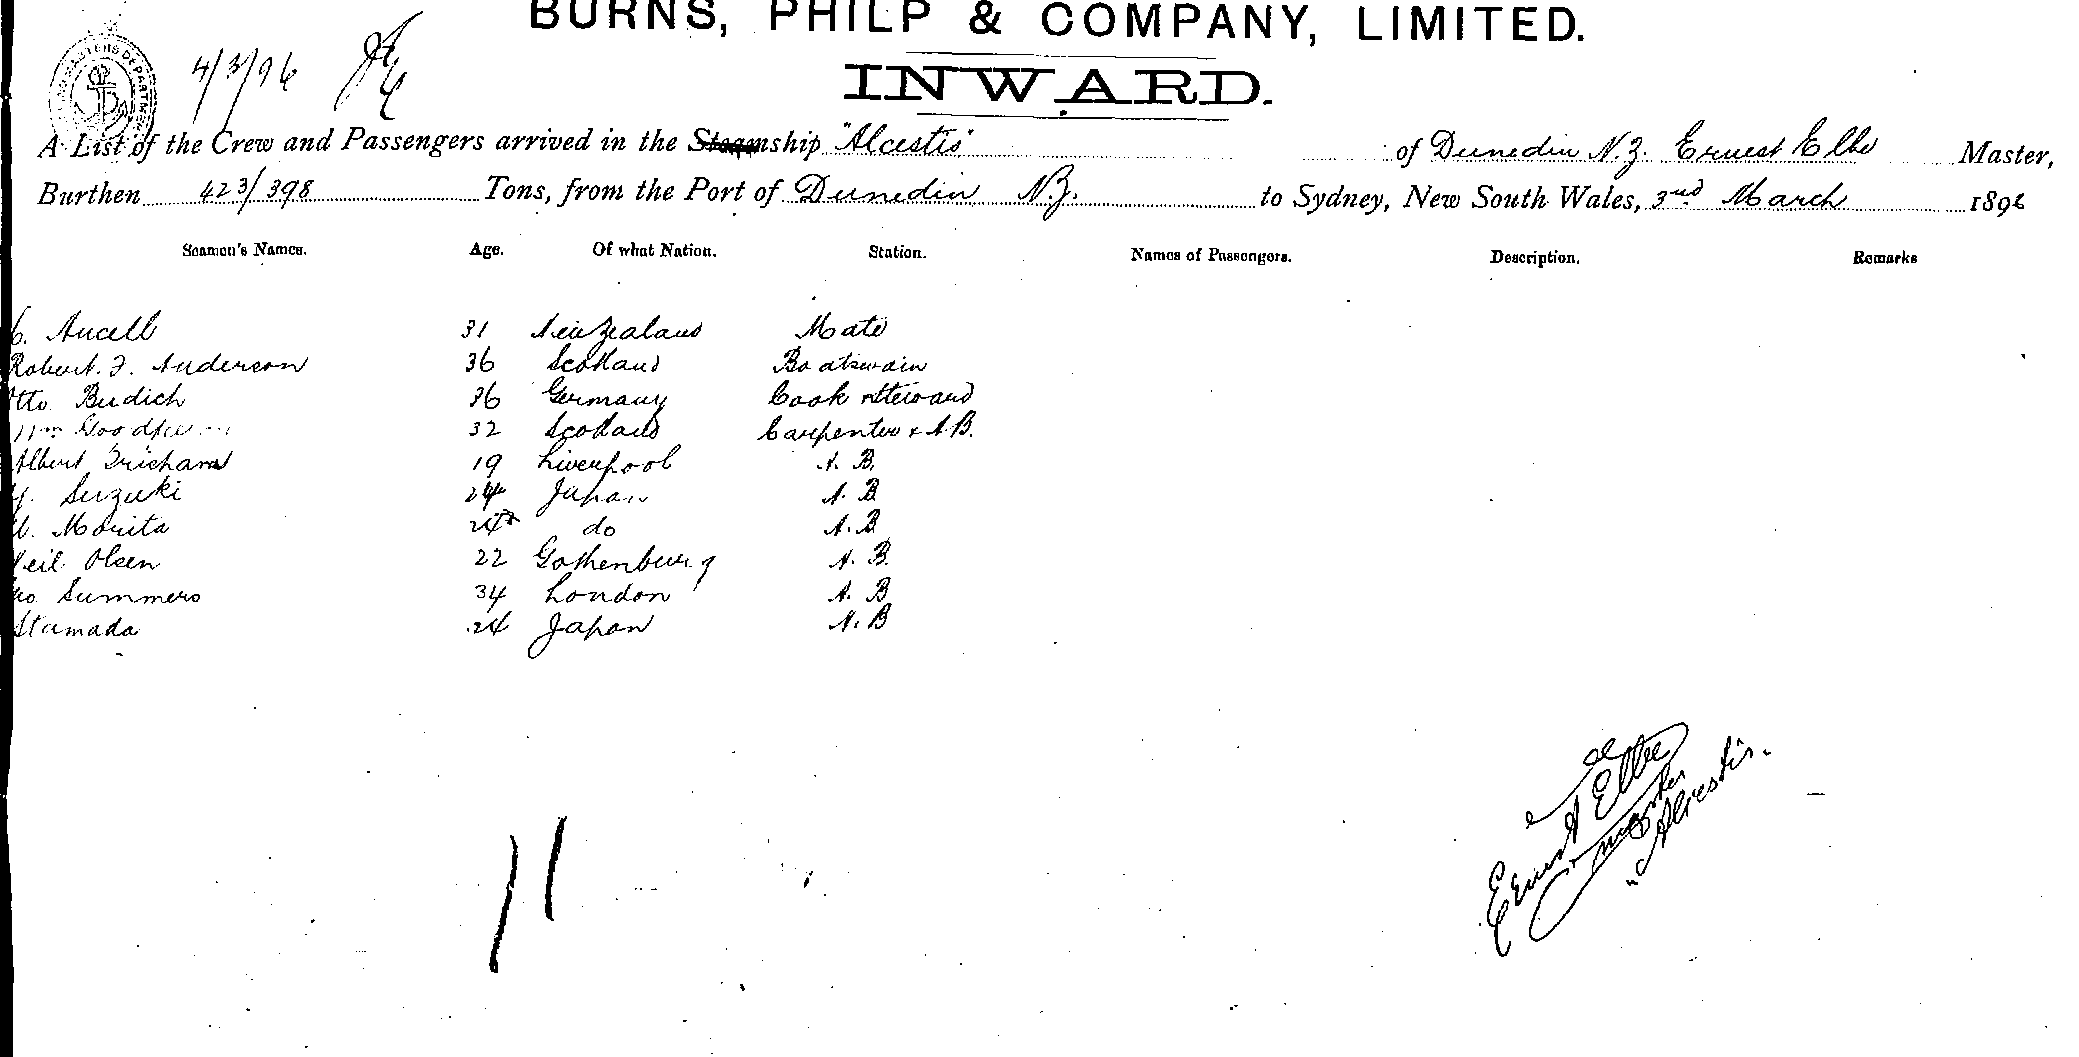 BURNS, PHILP & COMPANY, LIMITED.
4/3/96
INWARD.
A List of the Crew and Passengers arrived in the Steamship "Alcestis" of Dunedin N.Z. Ernest Elbe Master,
Burthen 423/398 Tons, from the Port of Dunedin N.Z. to Sydney, New South Wales, 3rd March 1896
Seamen's Names. Age. Of what Nation. Station. Names of Passengers. Description. Remarks
Aucell 31 New Zealand Mate
Robert. J. Anderson 36 Scotland Boatswain
Otto Budich 36 Germany Cook & Steward
Wm 32 Scotland Carpenter & A.B.
Albert 19 Liverpool A. B.
Suzuki 24 Japan A. B
Morita 24 do A. B
Neil Olsen 22 Gothenburg A. B.
Summers 34 London A. B
24 Japan A. B
Ernest Elbe
Master
"Alcestis."
11